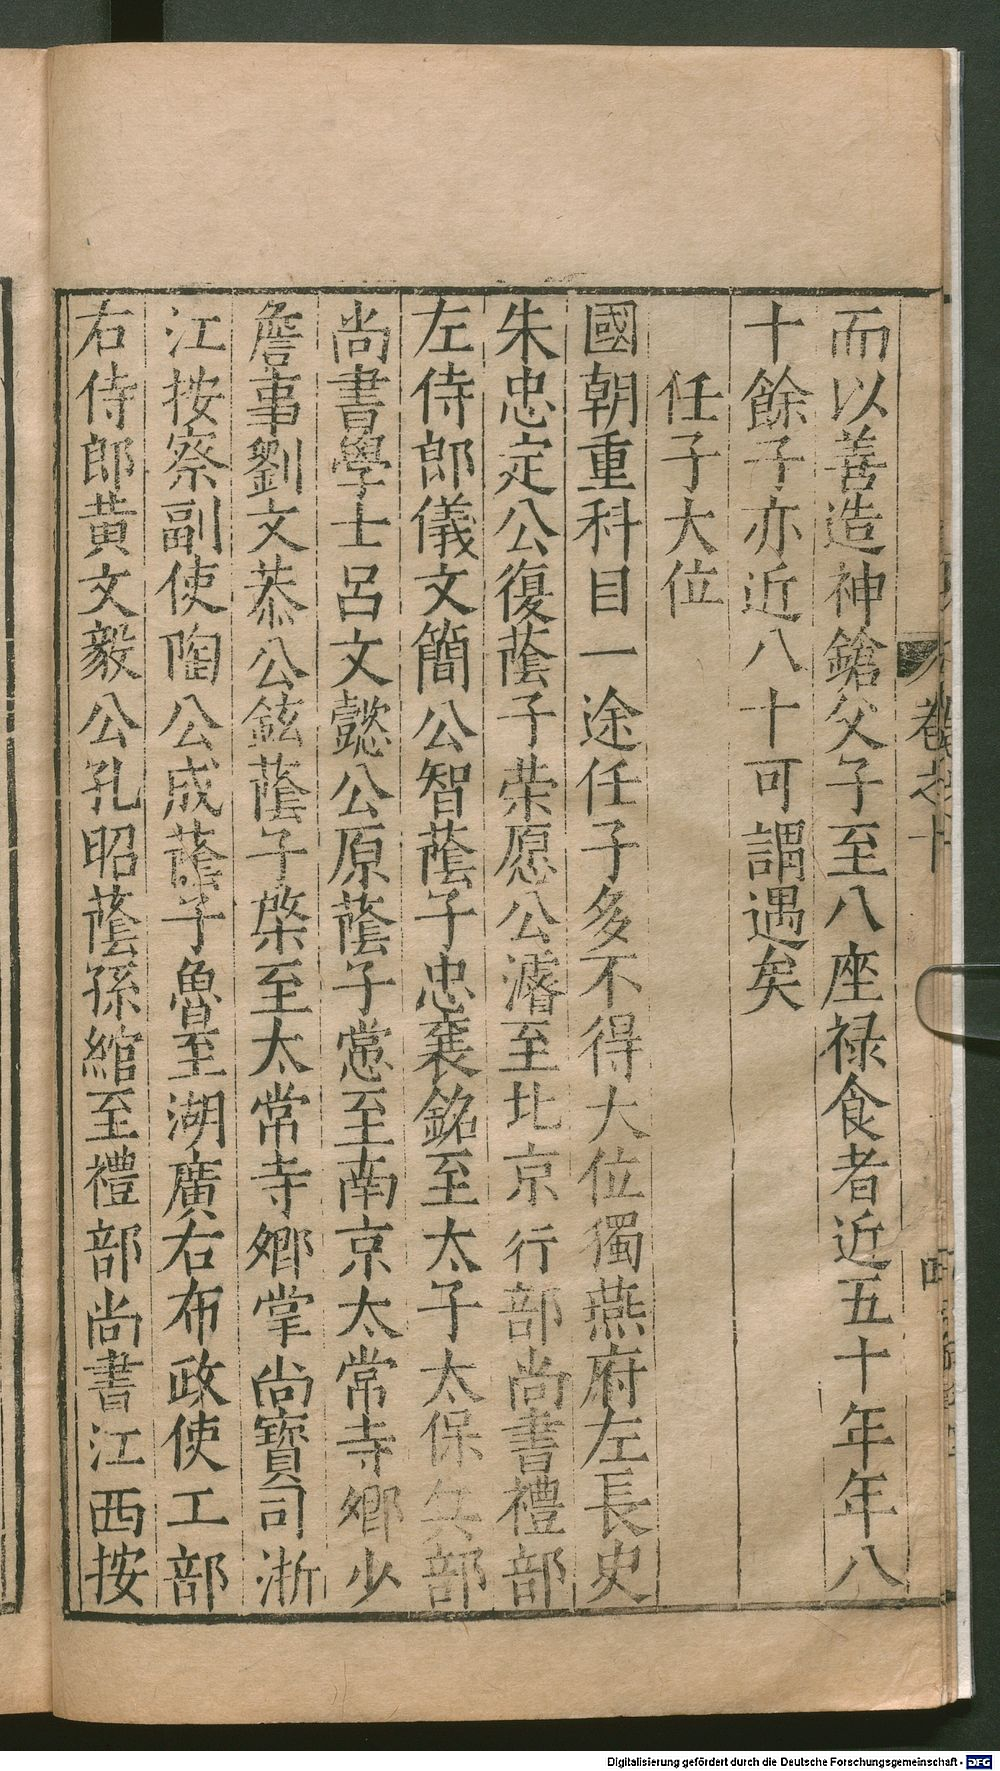 而以善造神鎗父子至八座禄食者近五十年年八
十餘子亦近八十可謂遇矣
任子大位
國朝重科目一途任子多不得大位獨燕府左長史
朱忠定公復䕃子荣愿公濬至北京行部尚書禮部
左侍郎儀文簡公智䕃子忠襄銘至太子太保兵部
尚書學士呂文懿公原䕃子㦂至南京太常寺卿少
詹事劉文恭公鉉䕃子棨至太常寺卿掌尚寶司浙
江按察副使陶公成䕃子魯至湖廣右布政使工部
右侍郎黄文毅公孔昭䕃孫綰至禮部尚書江西按
卷之十
Digitalisierung gefördert durch die Deutsche Forschungsgemeinschaft - DFG